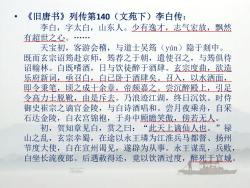 • 《旧唐书》列传第140（文苑下）李白传：
李白，字太白，山东人。少有逸才，志气宏放，飘然有超世之心。……
天宝初，客游会稽，与道士吴筠（yún）隐于剡中。既而玄宗诏筠赴京师，筠荐之于朝，遣使召之，与筠俱待诏翰林。白既嗜酒，日与饮徒醉于酒肆。玄宗度曲，欲造乐府新词，亟召白，白已卧于酒肆矣。召入，以水洒面，即令秉笔，顷之成十余章，帝颇嘉之。尝沉醉殿上，引足令高力士脱靴，由是斥去。乃浪迹江湖，终日沉饮。时侍御史崔宗之谪官金陵，与白诗酒唱和。尝月夜乘舟，自采石达金陵，白衣宫锦袍，于舟中顾瞻笑傲，傍若无人。
初，贺知章见白，赏之曰：“此天上谪仙人也。”禄山之乱，玄宗幸蜀，在途以永王璘为江淮兵马都督、扬州节度大使，白在宣州谒见，遂辟为从事。永王谋乱，兵败，白坐长流夜郎。后遇赦得还，竟以饮酒过度，醉死于宣城。